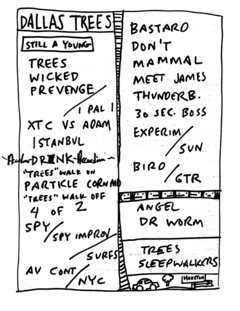 DALLAS TREES
STILL A YOUNG
TREES
WICKED
PREVENGE
1 PAL 1
XTC VS ADAM
ISTANBUL
DRINK
"TREES" WALK ON
PARTICLE CORN MAD
"TREES" WALK OFF
4 OF 2
SPY
SPY IMPROV
SURFS
AV CONT
NYC
BASTARD
DON'T
MAMMAL
MEET JAMES
THUNDERB.
30 SEC. BOSS
EXPERIM
SUN
BIRD
GTR
ANGEL
DR WORM
TREES
SLEEPWALKERS
HOUSTON